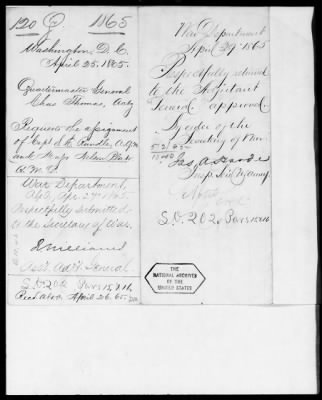 120 Q 1865
Washington, D.C.
April 25. 1865.
Quartermaster General
Chas Thomas, Actg
Request the assignment
of Capt A.Q.M.
and Nelson
Q.M.D.
War Department,
A.G.O. Apr. 27th 1865.
Respectfully submitted
to the Secretary of War.
Williams
Asst. Adjt. General.
S.O. 202 Pars 15, & 16.
Recd A.G.O. April 26. 65.
War Department
April 29th 1865
Respectfully returned
to the Adjutant
General approved
By order of the
Secretary of War.
Jas. A. Hardie
S.O. 202 Pars 15 & 16
THE
NATIONAL ARCHIVES
OF THE
UNITED STATES